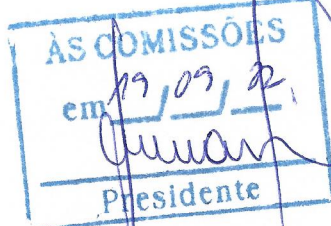 ÀS COMISSÕES
em 19 / 09 / 22
Presidente